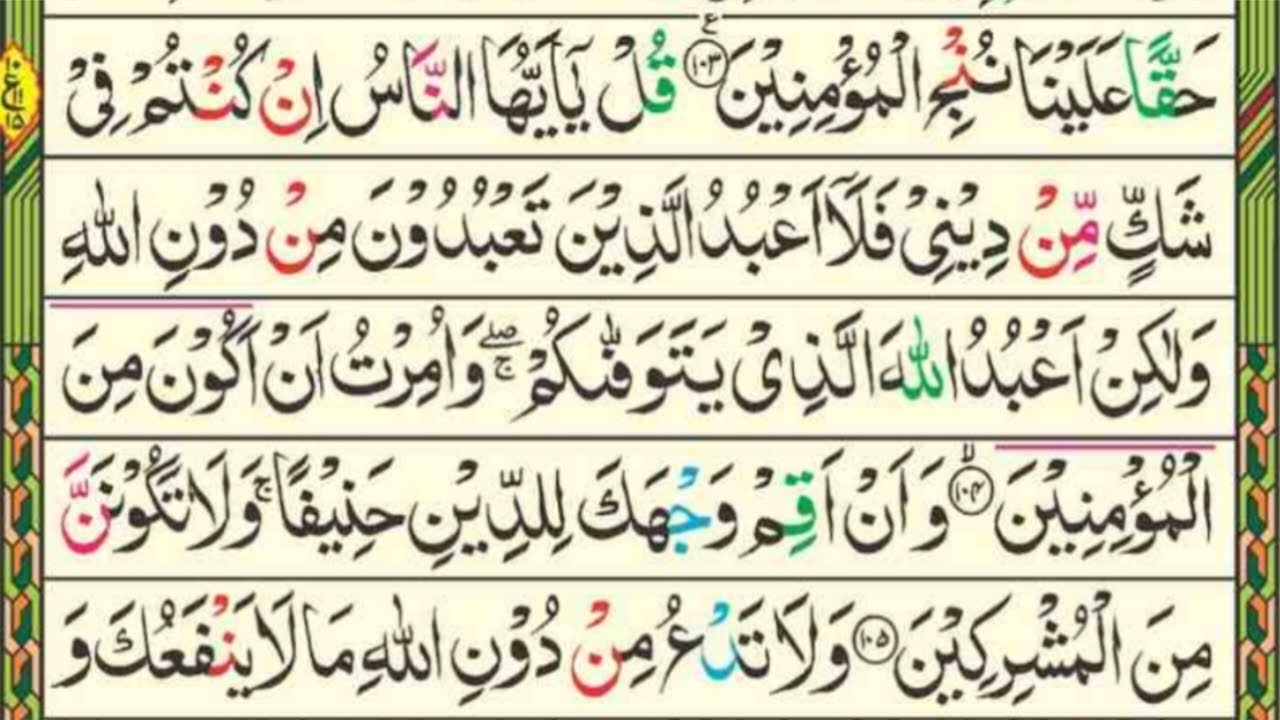 حَقًّا عَلَيْنَا نُنْجِ الْمُؤْمِنِيْنَ ﴿۱۰۳﴾ قُلْ يٰۤاَيُّهَا النَّاسُ اِنْ كُنْتُمْ فِيْ
شَكٍّ مِّنْ دِيْنِيْ فَلَاۤ اَعْبُدُ الَّذِيْنَ تَعْبُدُوْنَ مِنْ دُوْنِ اللّٰهِ
وَلٰكِنْ اَعْبُدُ اللّٰهَ الَّذِيْ يَتَوَفّٰىكُمْ ۖۚ وَاُمِرْتُ اَنْ اَكُوْنَ مِنَ
الْمُؤْمِنِيْنَ ﴿۱۰۴﴾ وَاَنْ اَقِمْ وَجْهَكَ لِلدِّيْنِ حَنِيْفًا ۚ وَلَا تَكُوْنَنَّ
مِنَ الْمُشْرِكِيْنَ ﴿۱۰۵﴾ وَلَا تَدْعُ مِنْ دُوْنِ اللّٰهِ مَا لَا يَنْفَعُكَ وَ